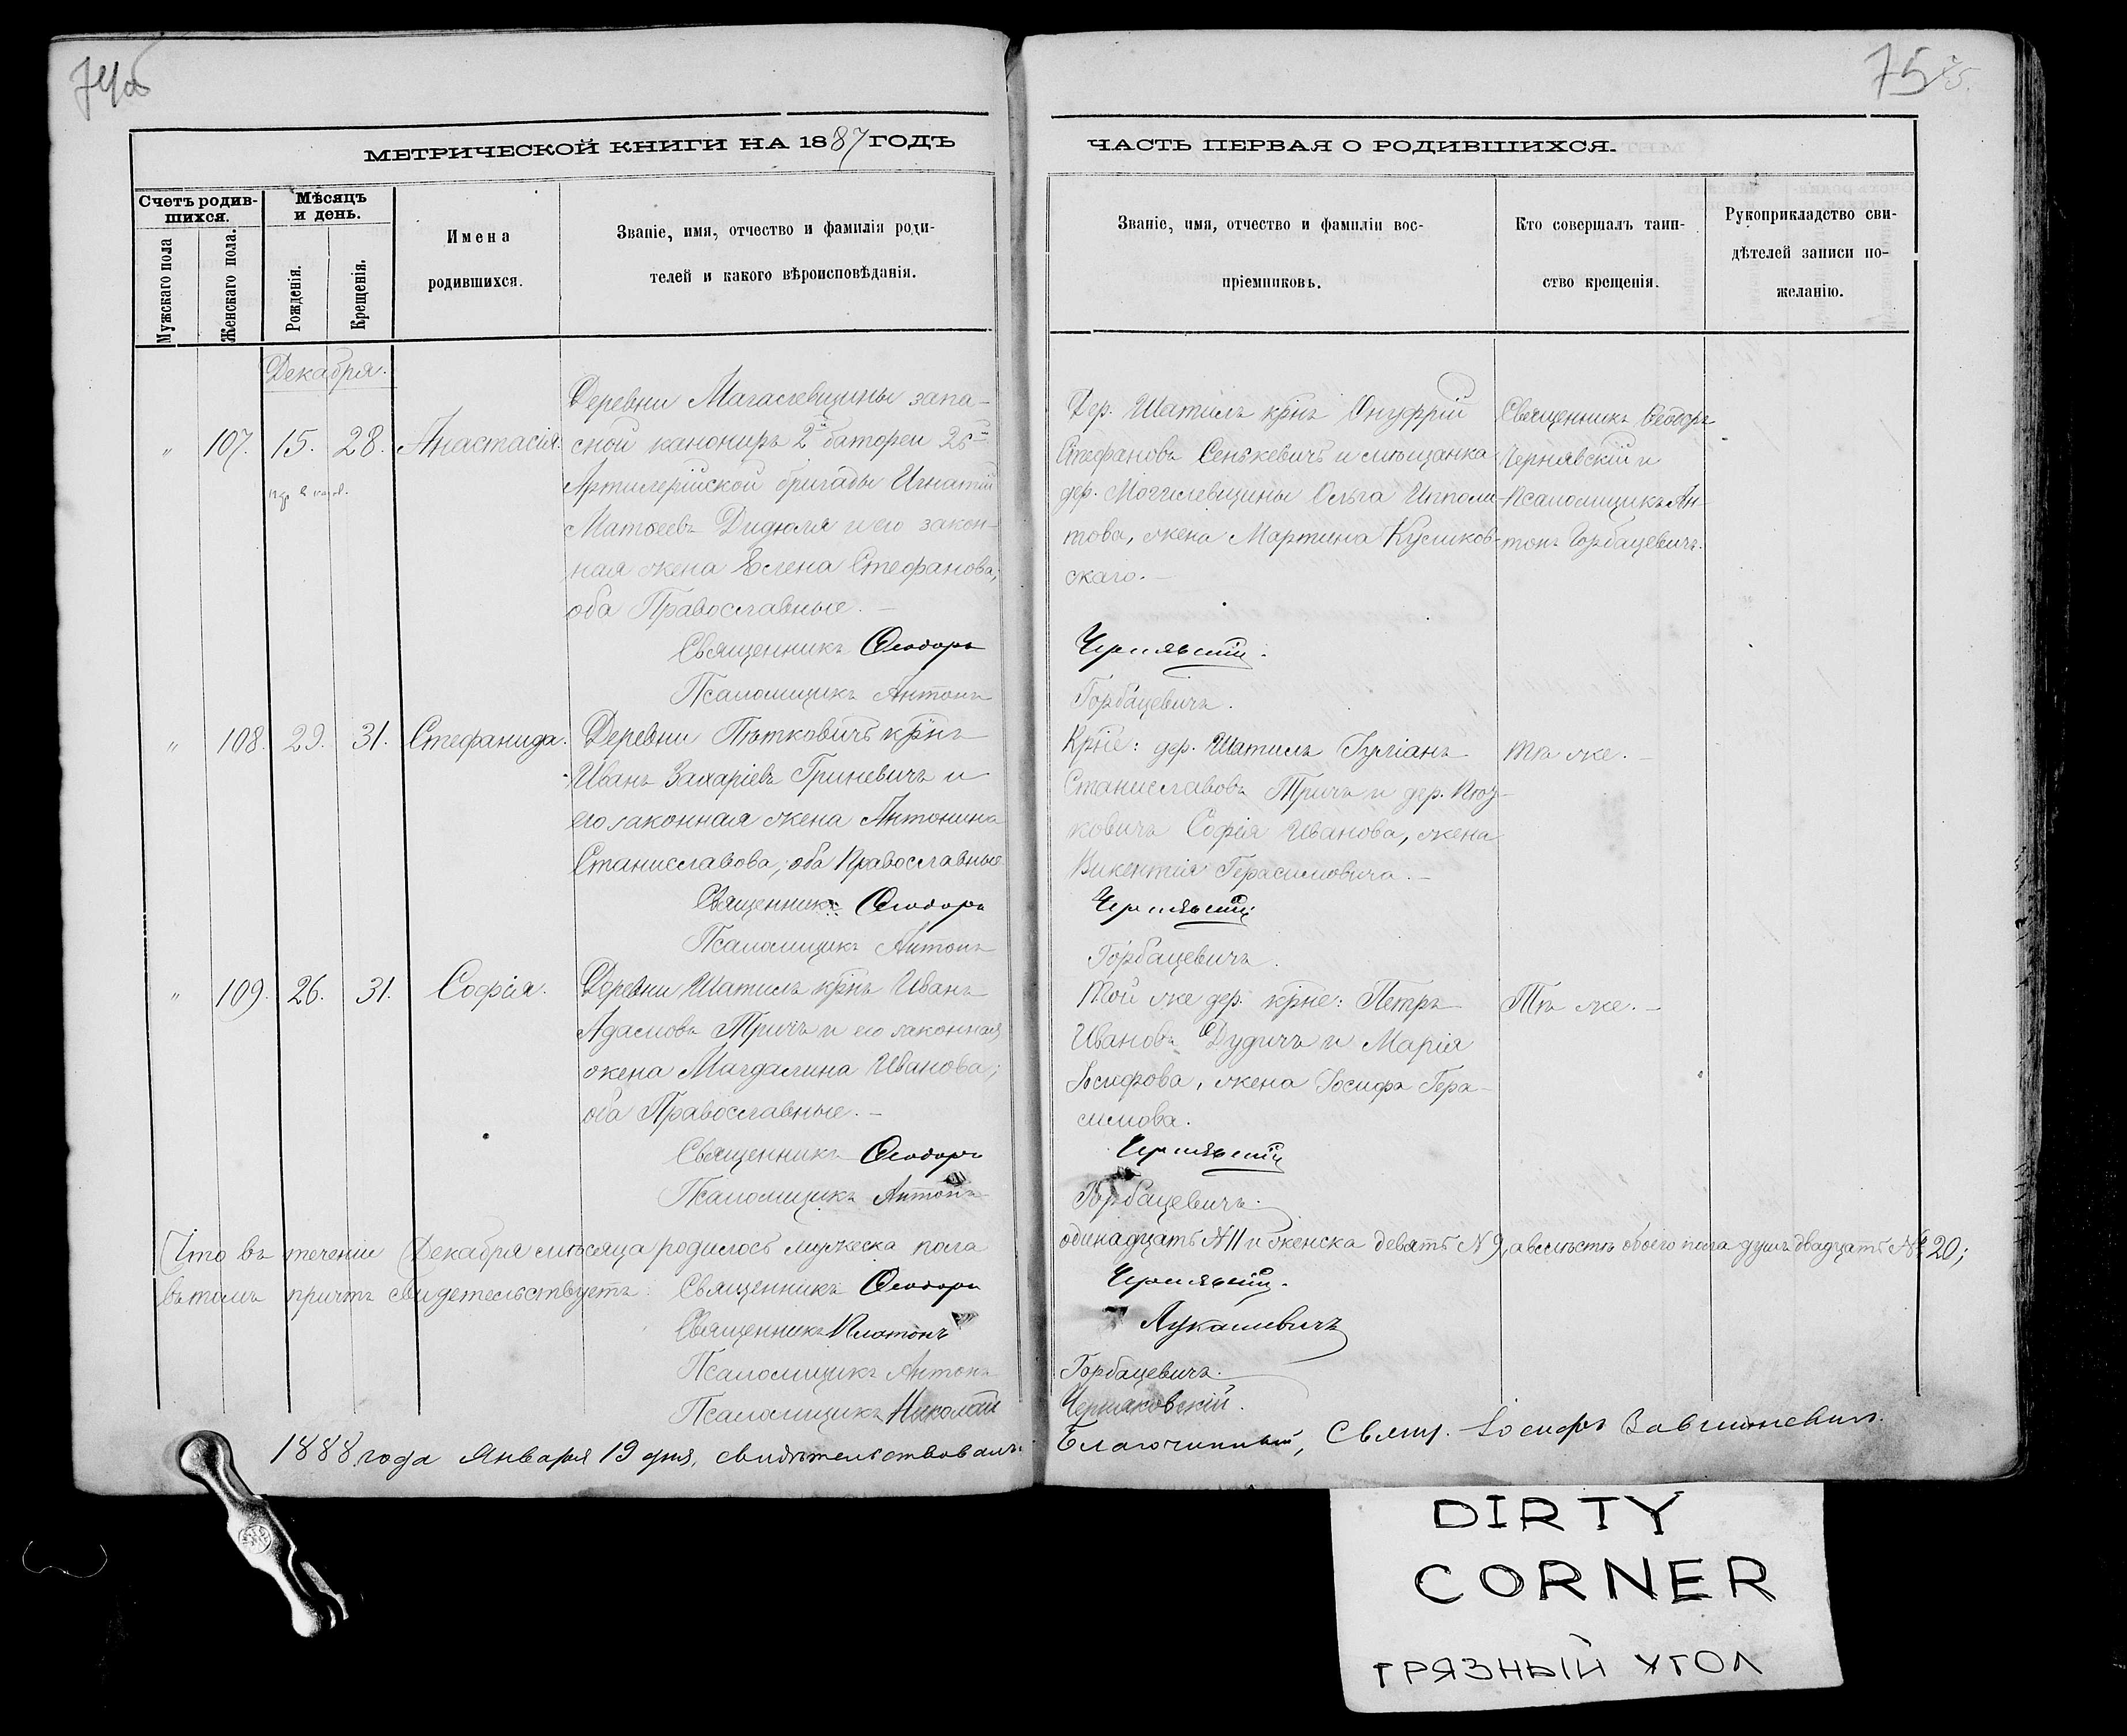 74об
75
МЕТРИЧЕСКОЙ КНИГИ НА 1887 ГОДЪ
Счетъ родив-
шихся.
Мѣсяцъ
и день.
Мужскаго пола
Женскаго пола.
Рожденія.
Крещенія.
Имена
родившихся.
Званіе, имя, отчество и фамилія роди-
телей и какого вѣроисповѣданія.
Декабря.
Деревни Магалевщины запа-
" 107. 15. 28. Анастасія. сной канониръ 2й батореи 26й
Артилерійской бригады Игнатій
Матѳеевъ Дидюля и его закон-
ная жена Елена Стефанова;
оба Православные. —
Священникъ Ѳеодоръ
Псаломщикъ Антонъ
" 108. 29. 31. Стефанида. Деревни Пѣтковичъ крнъ
Иванъ Захаріевъ Гриневичъ и
его законная жена Антонина
Станиславова, оба Православные
Священникъ Ѳеодоръ
Псаломщикъ Антонъ
" 109. 26. 31. Софія. Деревни Шатилъ крнъ Иванъ
Адамовъ Тричъ и его законная
жена Магдалина Иванова;
оба Православные. —
Священникъ Ѳеодоръ
Псаломщикъ Антонъ
Что въ теченіи Декабря мѣсяца родилось мужеска пола
въ томъ причтъ свидетельствуетъ: Священникъ Ѳеодоръ
Священникъ Платонъ
Псаломщикъ Антонъ
Псаломщикъ Николай
1888 года Января 19 дня, свидѣтельствовалъ
ЧАСТЬ ПЕРВАЯ О РОДИВШИХСЯ.
Званіе, имя, отчество и фамиліи вос-
пріемниковъ.
Кто совершалъ таин-
ство крещенія.
Рукоприкладство сви-
дѣтелей записи по-
желанію.
Дер. Шатилъ крнъ Онуфрій Священникъ Ѳеодоръ
Стефановъ Сенькевичъ и мѣщанка Чернявскій и
дер. Могилевщины Ольга Ипполи- Псаломщикъ Ан-
това, жена Мартина Куликов- тонъ Горбацевичъ.
скаго. —
Чернявскій.
Горбацевичъ.
Крне: дер. Шатилъ Іуліанъ Тѣ же. —
Станиславовъ Тричъ и дер.
ковичъ Софія Иванова, жена
Викентія Герасимовича. —
Чернявскій
Горбацевичъ.
Той же дер. крне: Петръ Тѣ же. —
Ивановъ Дудичъ и Марія
Іосифова, жена Іосифа Гера-
симова.
Чернявскій
Горбацевичъ.
одинадцать N 11 и женска девять N 9, а вмѣстѣ обоего пола душъ двадцать № 20;
Чернявскій.
Лукашевичъ
Горбацевичъ.
Черняковскій.
Благочинный, Свящ. Іосифъ
DIRTY
CORNER
ГРЯЗНЫЙ УГОЛ